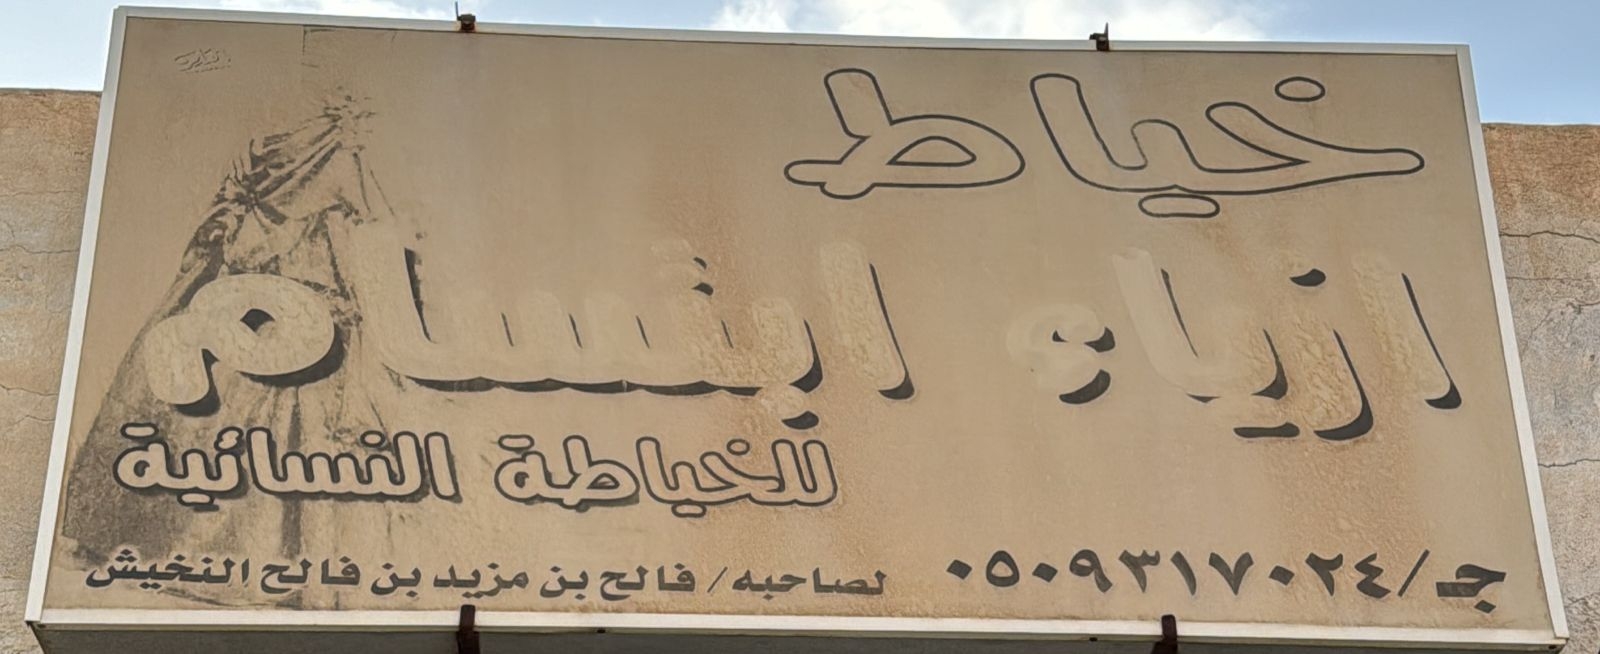 خياط
ازياء ابتسام
للخياطة النسائية
جـ/٠٥٠٩٣١٧٠٢٤ لصاحبه/فالح بن مزيد بن فالح النخيش